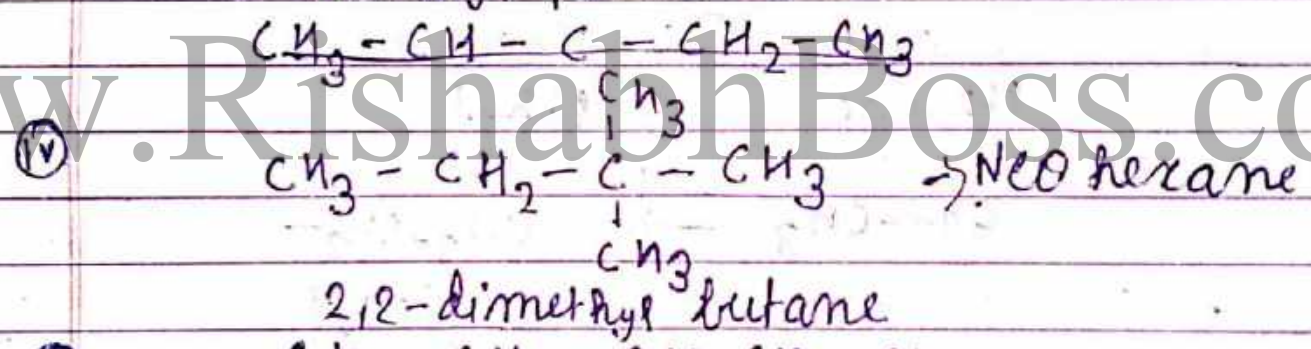 CH3 - CH - C - CH2 - CH3
w.RishabhBoss.co
CH3
(iv) CH3 - CH2 - C - CH3 → Neo hexane
CH3
2,2-dimethyl butane